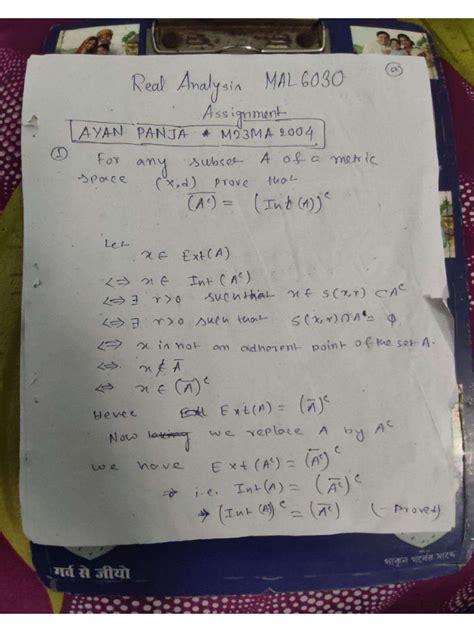 ⓐ
Real Analysis MAL6030
Assignment
AYAN PANJA * M23MA2004
① For any subset A of a metric
space (x,d) prove that
\overline{(A^c)} = (Int(A))^c
Let
x ∈ Ext(A)
<=> x ∈ Int(A^c)
<=> ∃ r>0 such that x ∈ S(x,r) ⊂ A^c
<=> ∃ r>0 such that S(x,r) ∩ A^c = ϕ
<=> x is not an adherent point of the set A.
<=> x ∉ \overline{A}
<=> x ∈ (\overline{A})^c
Hence Ext(A) = (\overline{A})^c
Now we replace A by A^c
we have Ext(A^c) = (\overline{A^c})^c
⇒ i.e. Int(A) = (\overline{A^c})^c
⇒ (Int(A))^c = (\overline{A^c}) (- Proved)
गर्व से जीयो
থাকুন গর্বের সাথে